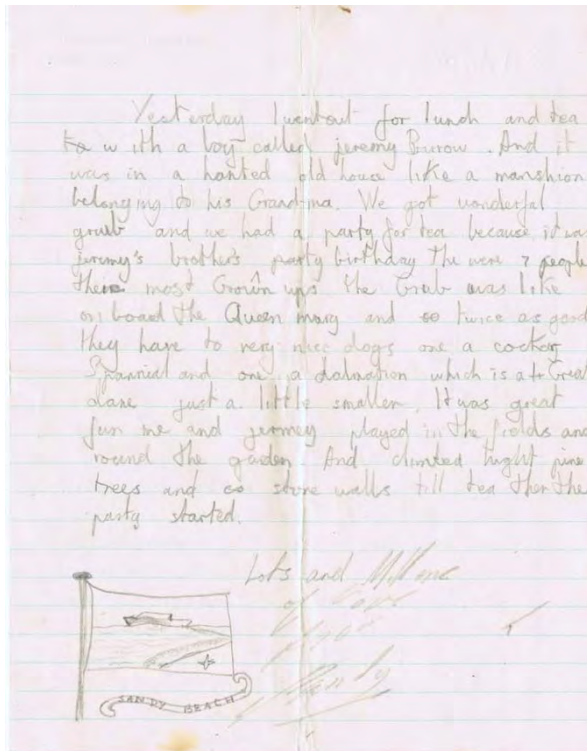 Yesterday I went out for lunch and tea
to with a boy called jeremy Burrow. And it
was in a hanted old house like a manshion
belonging to his Grandma. We got wonderful
grub and we had a party for tea because it was
jeremy's brother's party birthday The were 7 people
their most Grown ups the Grub was like
on board the Queen mary and so twice as good
they have to very nice dogs one a cocker
Spannial and one a dalmation which is a Great
dane just a little smaller. It was great
fun me and jermey played in the fields and
round the garden And climbed hight pine
trees and stone walls till tea then the
party started.
Lots and Millions
of Love
from
SANDY BEACH